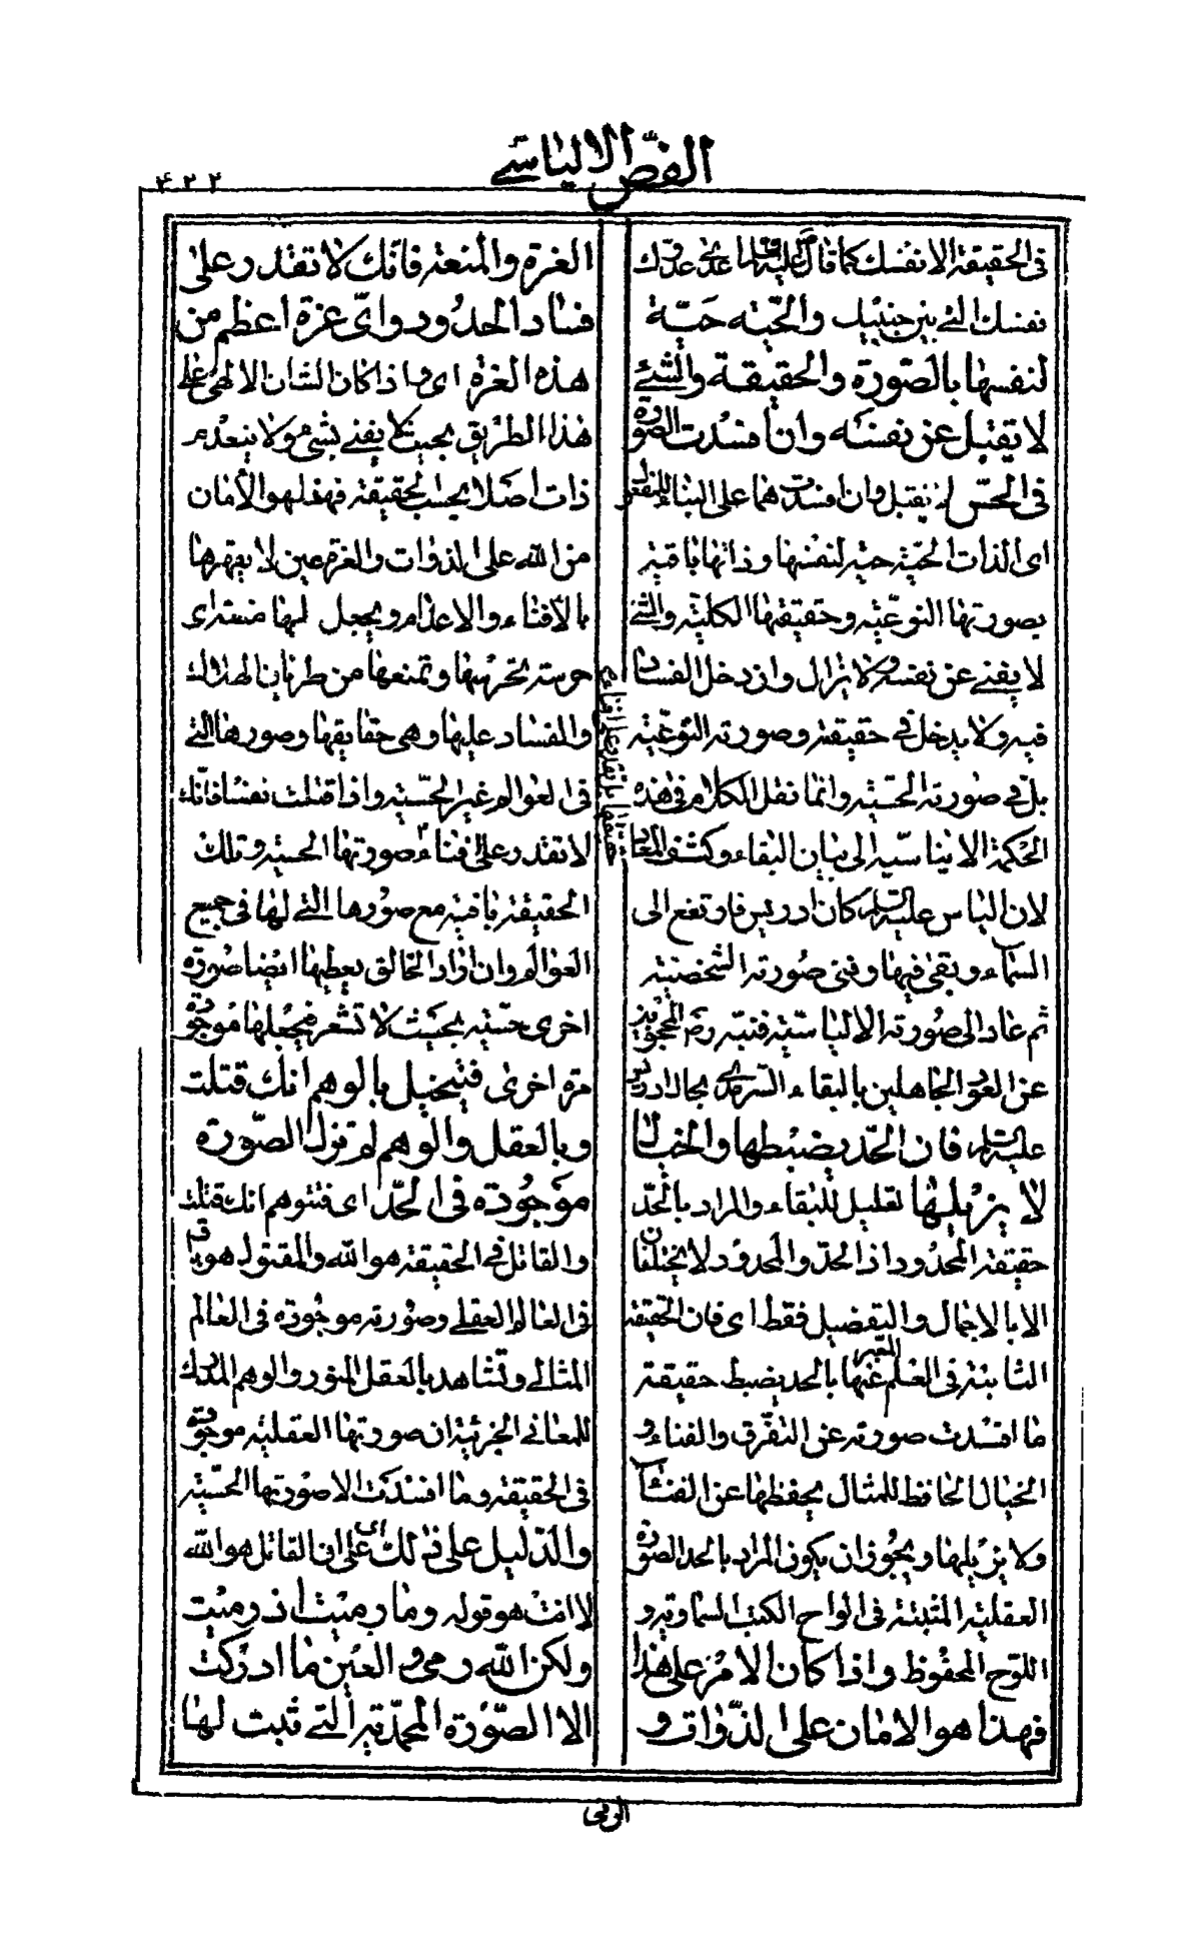 الفصّ الالياسے
۴۲۲
فى الحقيقة الا نفسك كما قال عليه السلم اعدى عدوك
نفسك التے بين جنبيك والحيّه حيّة
لنفسها بالصّورة والحقيقة والشئے
لا يقتل عن نفسه وان افسدت الصّورة
فى الحسّ اى يقتل وان افسدت هما على البناء للمفعول
اى الذات الحيّة حيّة لنفسها وذاتها باقية
بصورتها النوعيّة وحقيقتها الكليّة والشئ
لا يفنے عن نفسه ولا يزال وان دخل الفساد
فيه ولا يدخل فے حقيقته وصورته النوعيّة
بل فے صورته الحسّية وانما نقل الكلام فى هذه
الحكمة الايناسيّة الى بيان البقاء وكشف المعاد
لان الياس عليه السلم كان ادريس فارتفع الى
السماء وبقى فيها وفنى صورته الشخصيّة
ثم عاد الى صورته الالياسيّة فنبّه رضى المحجوبين
عن العود الجاهلين بالبقاء السرمدى بحال ادريس
عليه السلم فان الحّد يضبطها والخيال
لا يزيلها تعليل للبقاء والمراد بالحّد
حقيقة المحدود اذ الحدّ والمحدود لا يختلفان
الا بالاجمال والتفصيل فقط اى فان الحقيقة
الثابتة فى العلم المعبر عنها بالحد يضبط حقيقة
ما افسدت صورته عن التفرّق والفناء و
الخيال الحافظ للمثال يحفظها عن الفساد
ولا يزيلها ويجوز ان يكون المراد بالحد الصّورة
العقليّة المثبتة فى الواح الكتب السماوية و
اللوح المحفوظ واذا كان الامر على هذا
فهذا هو الامان على الذّوات و
العزة والمنعة فانك لا تقدر على
فساد الحدود واىّ عزة اعظم من
هذه العزة اى واذا كان الشان الالهى على
هذا الطريق بحيث لا يفنے بشئ ولا ينعدم
ذات اصلا بحسب الحقيقة فهذا هو الامان
من الله على الذوات والعزة عين لا يقهرها
بالافناء والاعدام ويجعل لها منعة اى
حرسة تحرسها وتمنعها من طريان الهلاك
والفساد عليها وهى حقايقها وصورها التے
فى العوالم غير الحسّية واذا قتلت نفسا فانّك
لا تقدر على افناء صورتها الحسية وتلك
الحقيقة باقية مع صورها التے لها فى جميع
العوالم وان اراد الخالق يعطيها ايضا صورة
اخرى حسّية بحيث لا تشعر فيجعلها موجودة
مرة اخرى فتخيل بالوهم انك قتلت
وبالعقل والوهم لم تزل الصّورة
موجودة فى الحّد اى فتتوهم انك قتلت
والقاتل فے الحقيقة هو الله والمقتول هو باق
فى العالم العقلے وصورته موجودة فى العالم
المثالے وتشاهد بالعقل المنور والوهم المدرك
للمعانے الجزئية ان صورتها العقلية موجودة
فى الحقيقة وما افسدت الا صورتها الحسّية
والدليل على ذلك اى على ان القاتل هو الله
لا انت هو قوله وما رميت اذ رميت
ولكن الله رمى والعين ما ادركت
الا الصّورة المحمّدية التے ثبت لها
حقيقتها با تقدر على افناء
الرمى